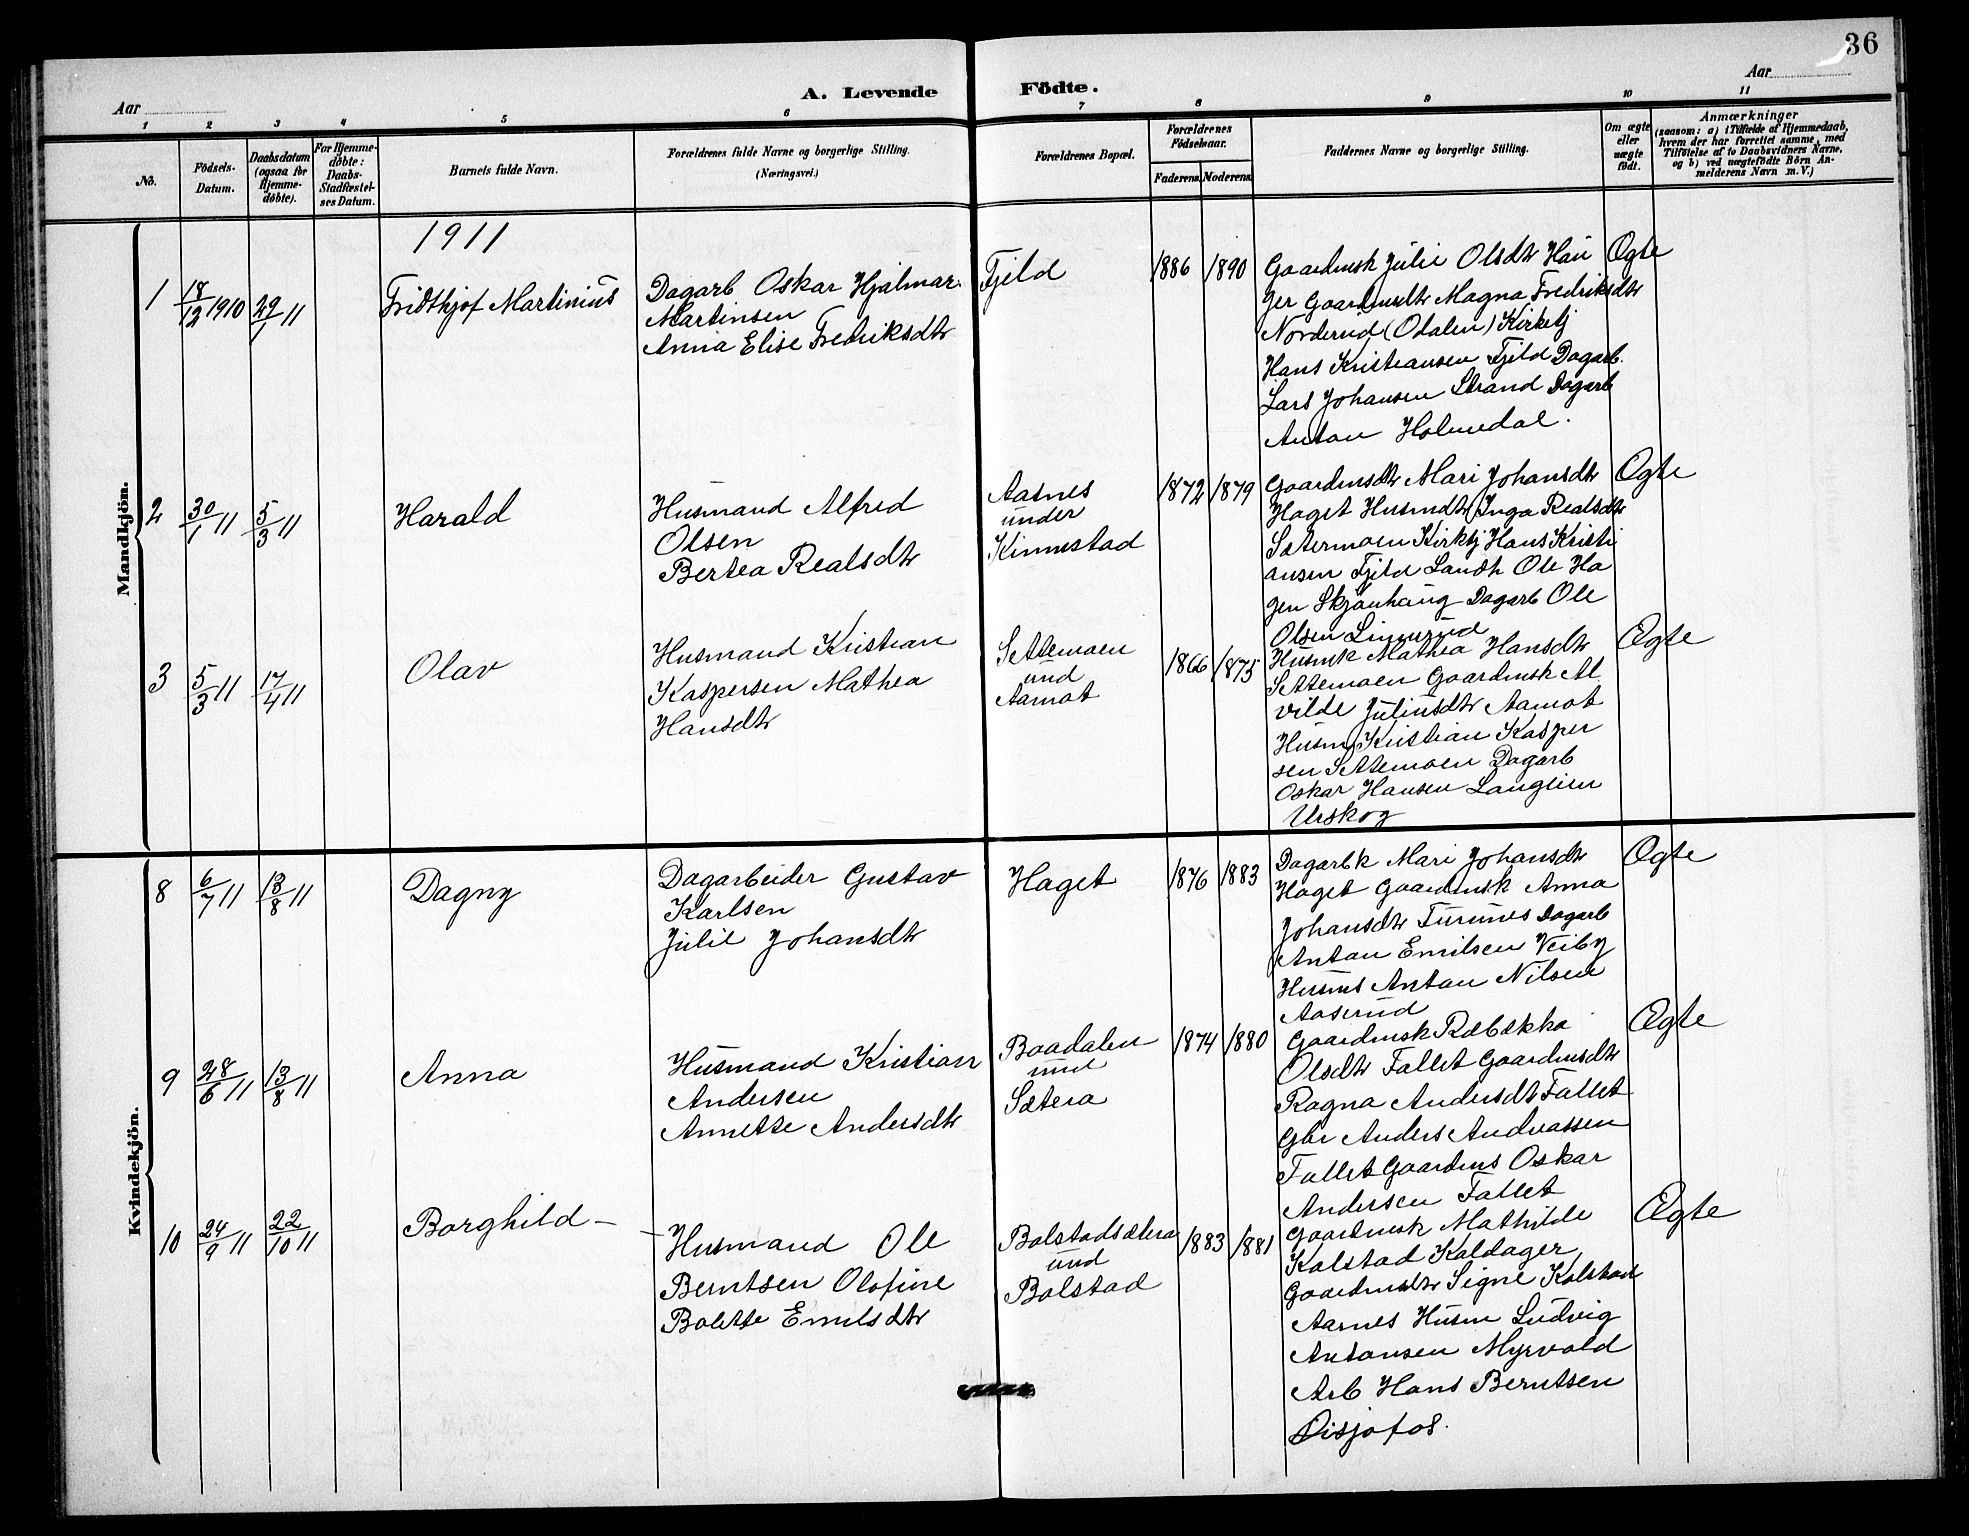 36
Aar
A. Levende Födte.
Aar
1 2 3 4 5 6 7 8 9 10 11
No.
Födsels-
Datum.
Daabsdatum
(ogsaa for
Hjemme-
döbte).
For Hjemme-
döbte:
Daabs-
Stadfæstel-
ses Datum.
Barnets fulde Navn.
Forældrenes fulde Navne og borgerlige Stilling.
(Næringsvei.)
Forældrenes Bopæl.
Forældrenes
Födselsaar.
Faderens. Moderens.
Faddernes Navne og borgerlige Stilling.
Om ægte
eller
uægte
födt.
Anmærkninger
(saasom: a) i Tilfælde af Hjemmedaab,
hvem der har forrettet samme, med
Tilföielse af to Daabsvidners Navne,
og b) ved uægtefödte Börn An-
melderens Navn m.V.)
Mandkjön.
1911
1
18/12 1910
29/1 11
Fridthjof Martinius
Dagarb Oskar Hjalmar
Martinsen
Anna Elise Fredriksdtr
Fjeld
1886
1890
Gaardmsk Julie Olsdtr Hau
ger Gaardmsdtr Magna Fredriksdtr
Norderud (Odalen) Kirketj
Hans Kristiansen Fjeld Dagarb.
Lars Johansen Strand Dagarb
Anton Holmedal.
Ægte
2
30/1 11
5/3 11
Harald
Husmand Alfred
Olsen
Bertea Realsdtr
Aasnes
under
Kinnestad
1872
1879
Gaardmsdtr Mari Johansdtr
Haget Husmdtr Inga Realsdtr
Sætermoen Kirketj Hans Kristi
ansen Fjeld Landh Ole Ha
gen Skjønhaug Dagarb Ole
Olsen Linnerud
Ægte
3
5/3 11
17/4 11
Olav
Husmand Kristian
Kaspersen Mathea
Hansdtr
Settemoen
und
Aamot
1866
1875
Husmk Mathea Hansdtr
Settemoen Gaardmsk Al
vilde Juliusdtr Aamot
Husm Kristian Kasper
sen Settemoen Dagarb
Oskar Hansen Langlien
Urskog
Ægte
Kvindekjön.
8
6/7 11
13/8 11
Dagny
Dagarbeider Gustav
Karlsen
Julie Johansdtr
Haget
1876
1883
Dagarbk Mari Johansdtr
Haget Gaardmsk Anna
Johansdtr Furunes Dagarb
Anton Emilsen Veiby
Husms Anton Nilsen
Aaserud
Ægte
9
28/6 11
13/8 11
Anna
Husmand Kristian
Andersen
Annette Andersdtr
Baadalen
und
Sætera
1874
1880
Gaardmsk Rebekka
Olsdtr Fallet Gaardmsdtr
Ragna Andersdtr Fallet
Gbr Anders Andreassen
Fallet Gaardms Oskar
Andersen Fallet
Ægte
10
24/9 11
22/10 11
Borghild –
Husmand Ole
Berntsen Olofine
Bolette Emilsdtr
Bolstadsætera
und
Bolstad
1883
1881
Gaardmsk Mathilde
Kolstad Kaldager
Gaardmsdtr Signe Kolstad
Aarnes Husm Ludvig
Antonsen Myrvold
Arb Hans Berntsen
Disjofos.
Ægte